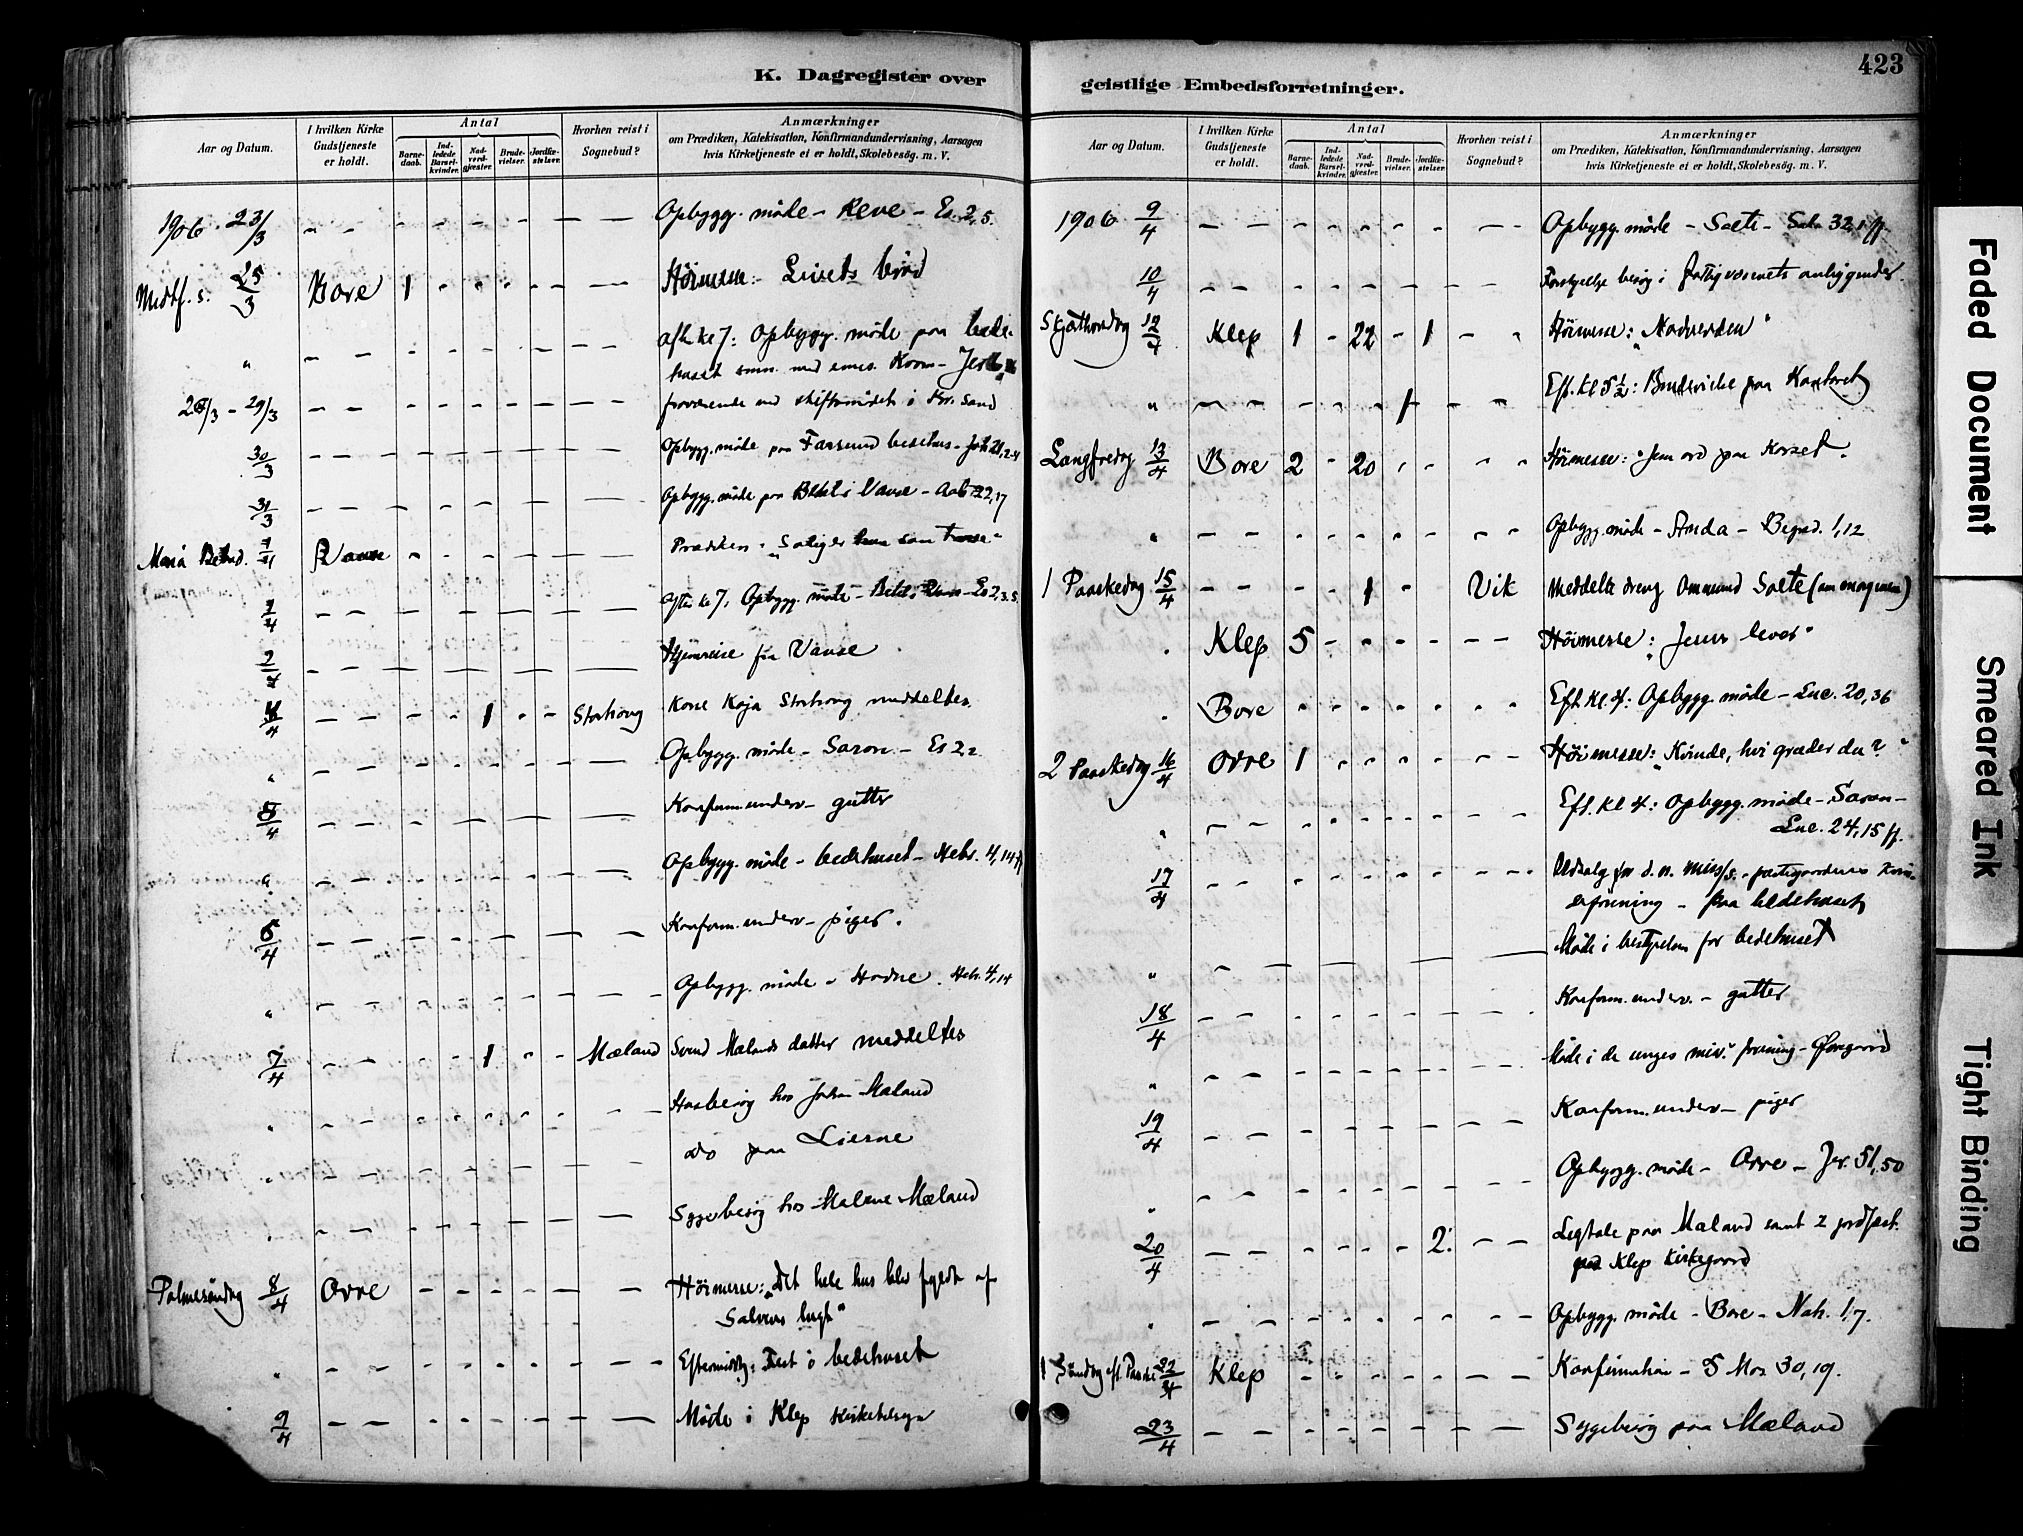 K. Dagregister over
Aar og Datum.
I hvilken Kirke Gudstjeneste er holdt.
Antal
Barne-daab.
Ind-ledede Barsel-kvinder.
Nad-verd-gjæster.
Brude-vielser.
Jordfæ-stelser.
Hvorhen reist i Sognebud?
Anmærkninger
om Prædiken, Katekisation, Konfirmandundervisning, Aarsagen
hvis Kirketjeneste ei er holdt, Skolebesög. m. V.
1906 23/3 Opbygg. møde - Reve - Es. 2,5.
Midtf. s. 25/3 Bore 1 Høimesse: Livets brød
" Aften kl 7: Opbygg. møde paa bede-
huset
- 29/3 fraværende ved stiftsmødet i Kr.sand
30/3 Opbygg. møde paa Farsund bedehus - Joh 21,2-4
31/3 Opbygg. møde paa Betel i Vanse - 22,17
Maria Vanse Prædiken: "Salig er hun som
1/4 Aften kl 7, Opbygg. møde - Betel, - Es 2,3.5.
2/4 Hjemreise fra Vanse
4/4 1 Storhoug Kone Kaja Storhoug meddeltes
" Opbygg. møde - Saron - Es 2
5/4 Konfirm. underv - gutter
" Opbygg. møde - bedehuset - Hebr. 4,14 ff
6/4 Konfirm. underv - piger.
" Opbygg. møde - Hodne. Hebr. 4,14
7/4 1 Mæland Svend Mælands datter meddeltes
" Husbesøg hos Johan Mæland
do paa Lierne
Sygebesøg hos Malene Mæland
Palmesøndag 8/4 Orre Høimesse: "Det hele hus blev fyldt af
Salvens lugt"
" Eftermiddg: Fest i bedehuset
9/4 Møde i Klep kirketilsyn
geistlige Embedsforretninger.
423
Aar og Datum.
I hvilken Kirke Gudstjeneste er holdt.
Antal
Barne-daab.
Ind-ledede Barsel-kvinder.
Nad-verd-gjæster.
Brude-vielser.
Jordfæ-stelser.
Hvorhen reist i Sognebud?
Anmærkninger
om Prædiken, Katekisation, Konfirmandundervisning, Aarsagen
hvis Kirketjeneste ei er holdt, Skolebesög. m. V.
1906 9/4 Opbygg. møde - Soete - Salm 32,1 ff
10/4 besøg i fattigvæsenets anliggender
Skjærthorsdag 12/4 Klep 1 22 1 Høimesse: "Nadverden"
" 1 Eft. kl 5½: Brudevielse paa Kontoret
Langfredag 13/4 Bore 2 20 Høimesse: "Jesu ord paa Korset.
" Opbygg. møde - Anda - 1,12
1 Paaskedag 15/4 1 Vik Meddelte dreng Ommund Soete
" Klep 5 Høimesse: "Jesus lever"
" Bore Eft. kl. 4: Opbygg. møde - Luc. 20,36
2 Paaskedag 16/4 Orre 1 Høimesse: "Kvinde, hvi græder du?"
" Eft. kl 4: Opbygg. møde - Saron -
Luc. 24,15 ff.
17/4 Udsalg for d. n. miss/s. - præstegaardens Kvin-
deforening - paa bedehuset
" Møde i bestyrelsen for bedehuset
18/4 Konfirm. underv. - gutter
" Møde i de unges miss. forening -
19/4 Konfirm. underv - piger
" Opbygg. møde - Orre - Jer. 51,50
20/4 2. Ligtale paa Mæland samt 2 jordfæst.
paa Klep kirkegaard
" Opbygg. møde - Bore - Nah. 1,7.
1 Søndag eft. Paaske 22/4 Klep Konfirmation - 5 Mos 30,19.
23/4 Sygebesøg paa Mæland
Faded Document
Smeared Ink
Tight Binding